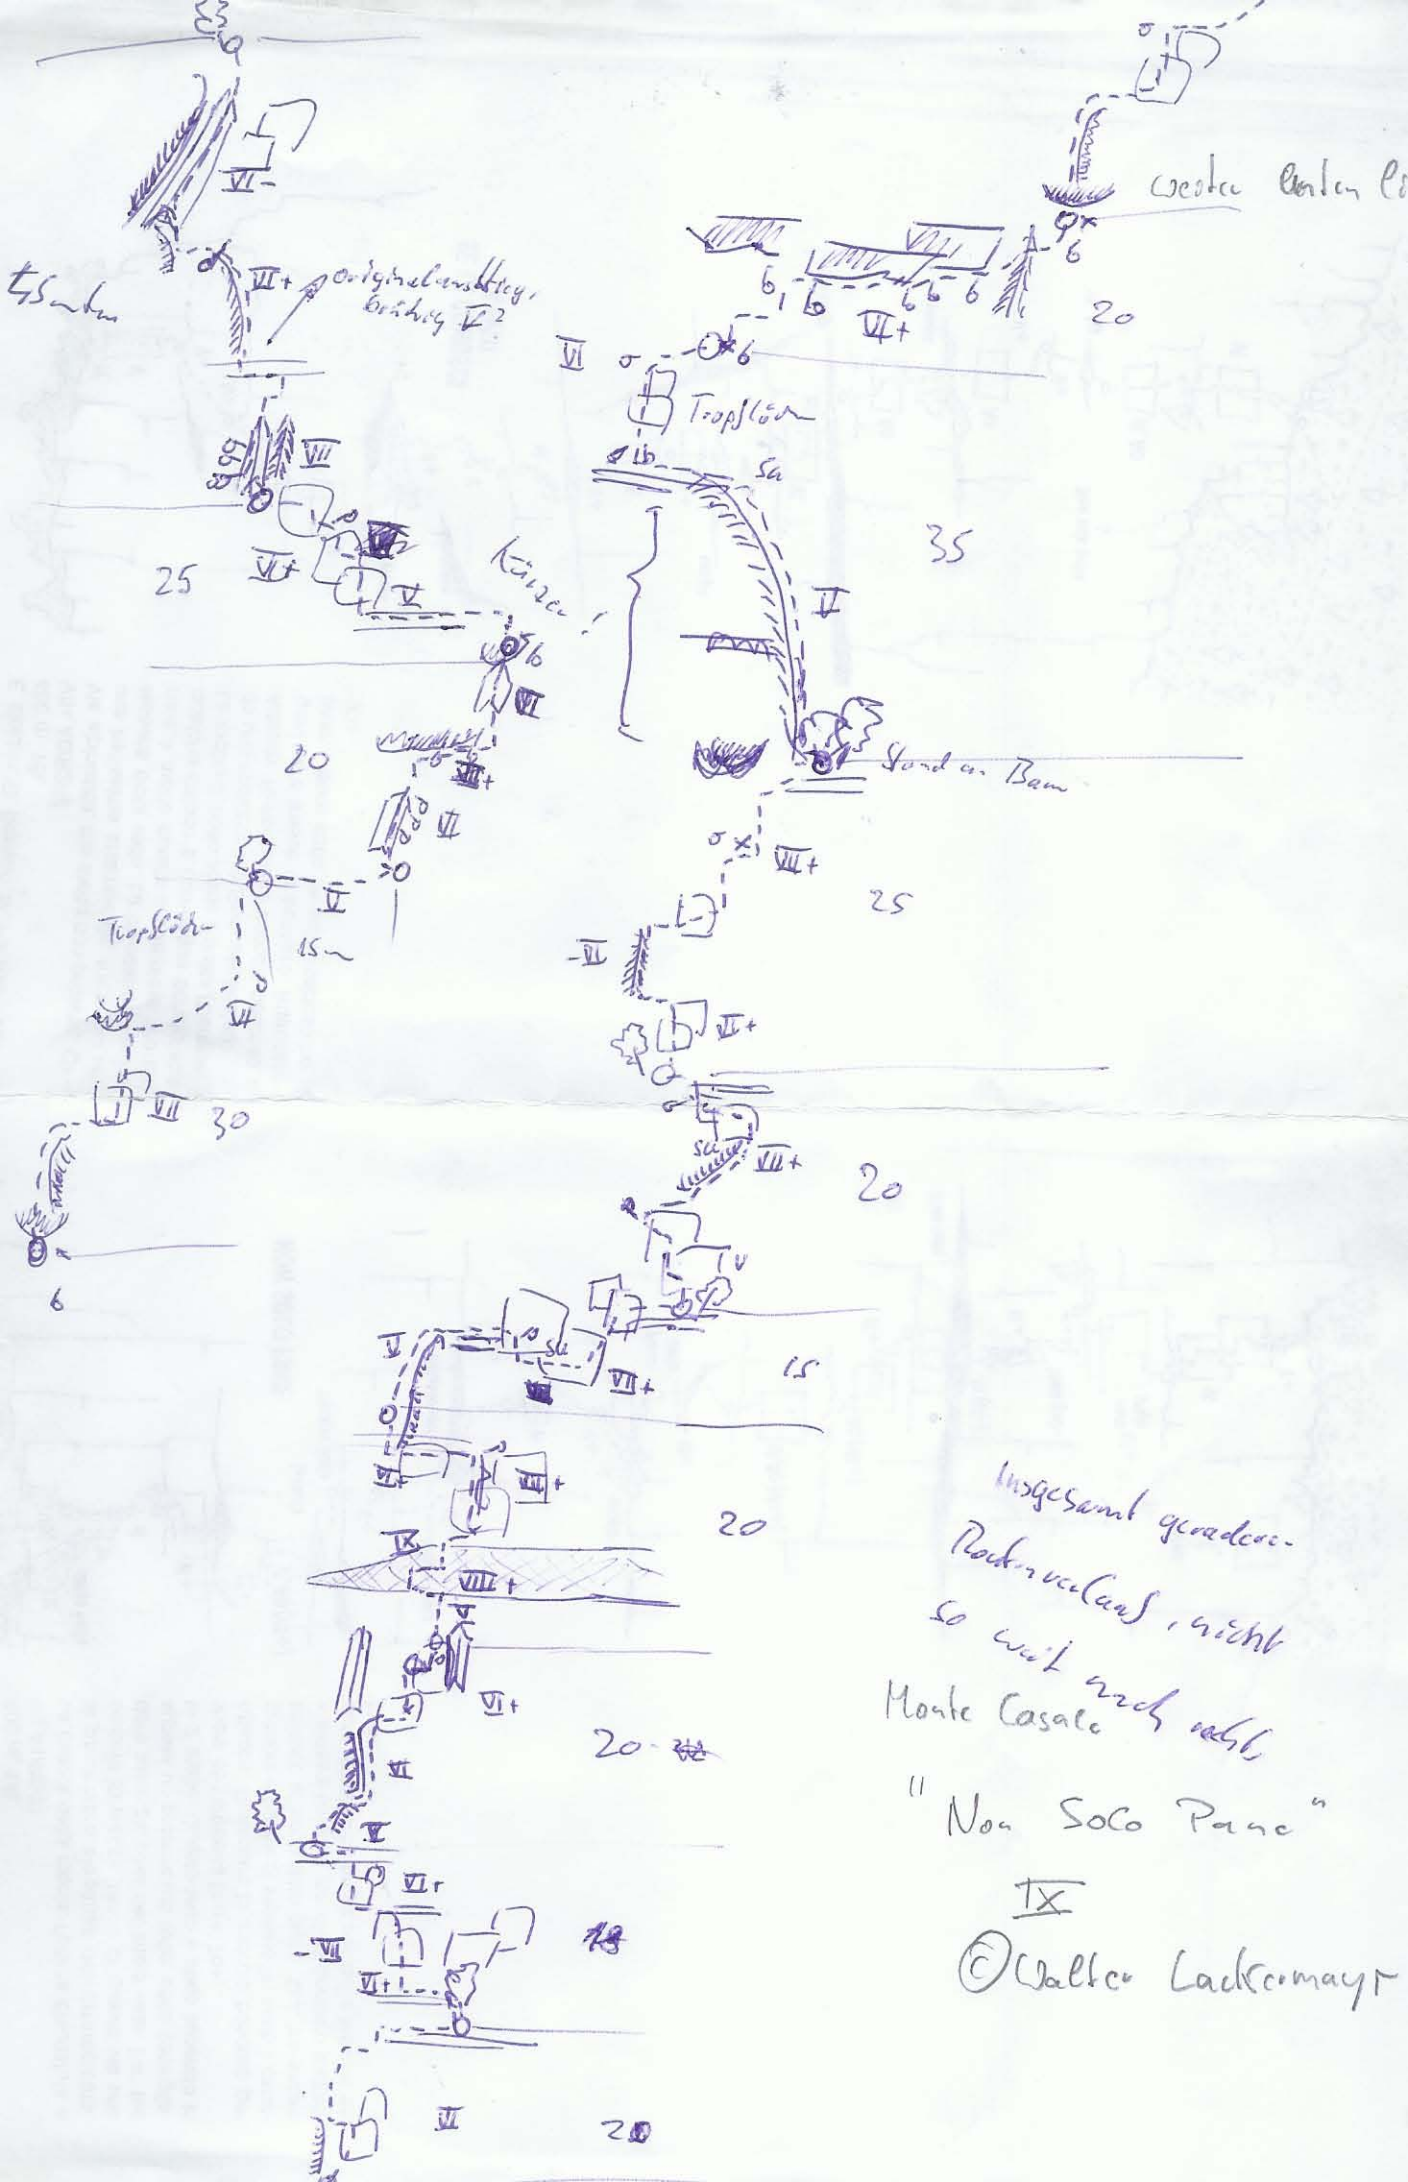 VI-
VII+
originalausstieg,
brüchig V?
VII
VI+
25
V
6
VI
20
VII+
VI
VI
15m
Tropflöcher
VI
VII
30
6
weiter
6
6 6 6 6 6
VII+
20
VI
6
Tropflöcher
Su
35
V
Kürzen!
Stand an Baum
VII+
25
-VI
VI+
Su
VII+
20
VI
Su
VII+
15
VII+
20
IX
VIII+
VI+
20
VI
VI
VI+
-VII
VI+
VI
20
Insgesamt gerader
Routenverlauf, nicht
so weit nach rechts
Monte Casale
"Non Solo Pane"
IX
© Walter Lackermayr